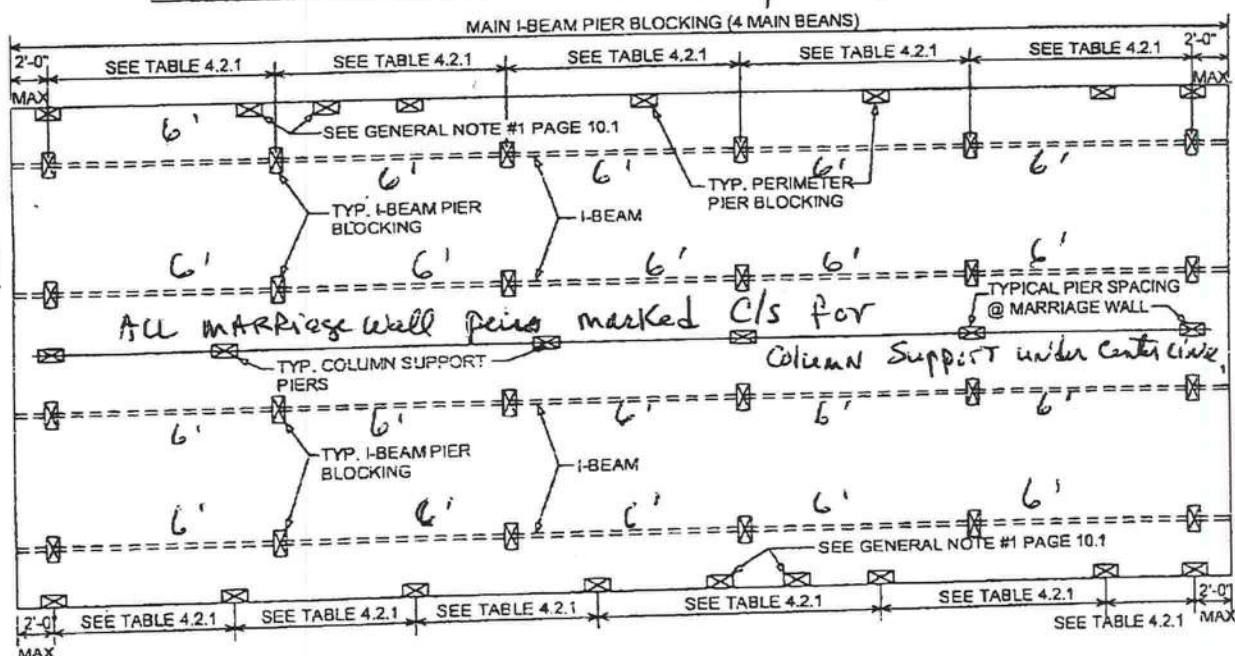 MAIN I-BEAM PIER BLOCKING (4 MAIN BEANS)
2'-0" SEE TABLE 4.2.1 SEE TABLE 4.2.1 SEE TABLE 4.2.1 SEE TABLE 4.2.1 SEE TABLE 4.2.1 2'-0"
MAX MAX
6' SEE GENERAL NOTE #1 PAGE 10.1
6' 6' 6' 6'
TYP. PERIMETER
PIER BLOCKING
TYP. I-BEAM PIER
BLOCKING
I-BEAM
6' 6' 6' 6' 6'
TYPICAL PIER SPACING
@ MARRIAGE WALL
ALL MARRiage Wall marked C/S for
Column Support under Center Line,
TYP. COLUMN SUPPORT
PIERS
6' 6' 6' 6' 6'
TYP. I-BEAM PIER
BLOCKING
I-BEAM
6' 6' 6' 6' 6'
SEE GENERAL NOTE #1 PAGE 10.1
2'-0" SEE TABLE 4.2.1 SEE TABLE 4.2.1 SEE TABLE 4.2.1 SEE TABLE 4.2.1 SEE TABLE 4.2.1 2'-0"
MAX MAX